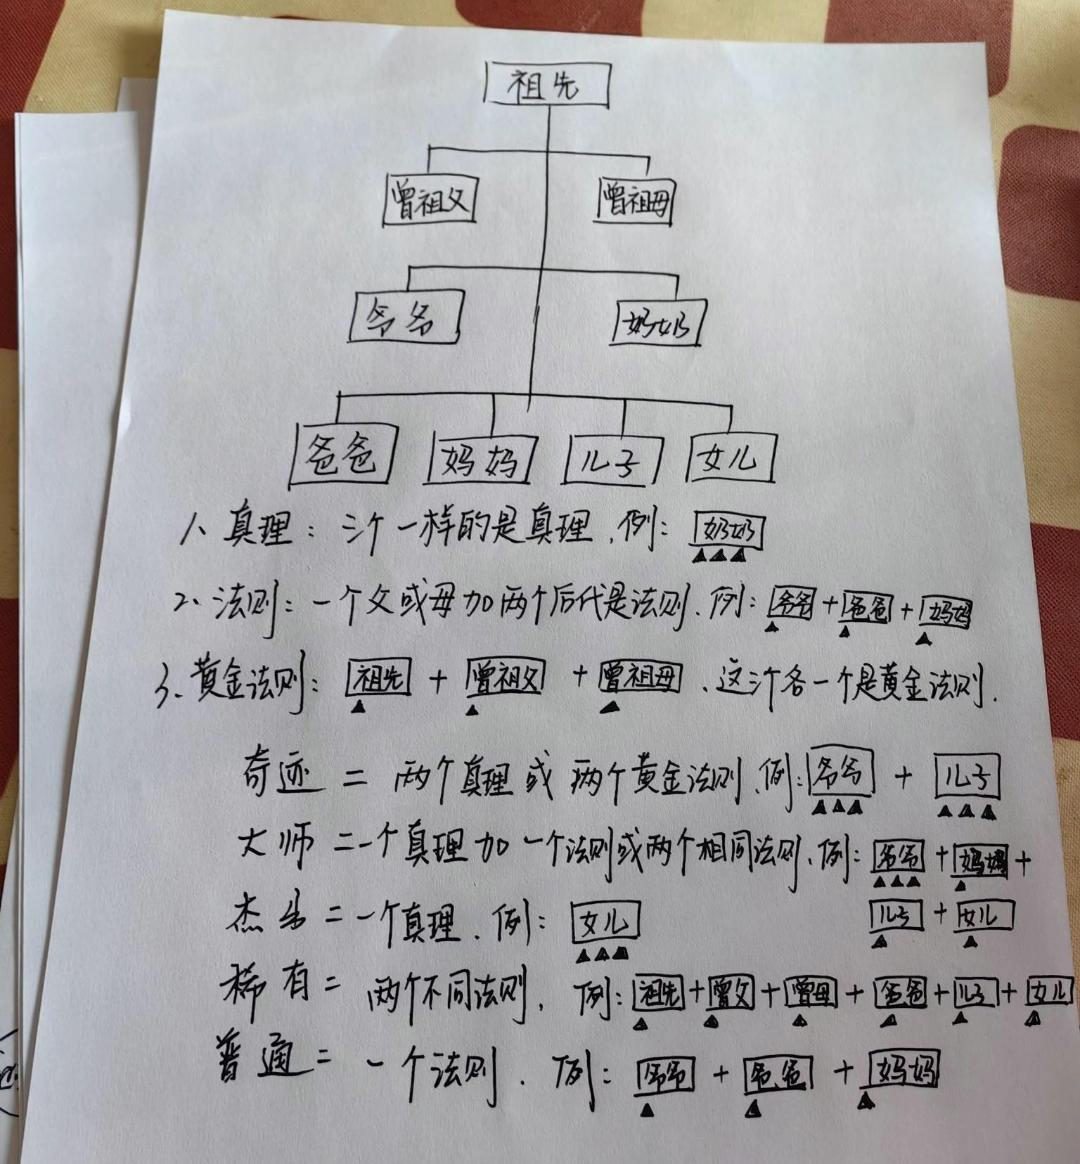 祖先
曾祖父 曾祖母
爷爷 奶奶
爸爸 妈妈 儿子 女儿
1、真理：三个一样的是真理、例：奶奶
2、法则：一个父或母加两个后代是法则、例：爷爷+爸爸+妈妈
3、黄金法则：祖先+曾祖父+曾祖母、这三个各一个是黄金法则.
奇迹=两个真理或两个黄金法则、例：爷爷+儿子
大师=一个真理加一个法则或两个相同法则、例：爷爷+妈妈+
儿子+女儿
杰出=一个真理、例：女儿
稀有=两个不同法则、例：祖先+曾父+曾母+爸爸+儿子+女儿
普通=一个法则、例：爷爷+爸爸+妈妈